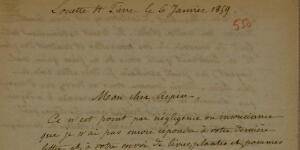 Louette St. Pierre le 6 Janvier 1859
550
Mon cher Crépin,
Ce n'est point par négligence ou insouciance
que je n'ai pas encore répondu à votre dernière
lettre et à votre envoi de livres, plantes et pommes